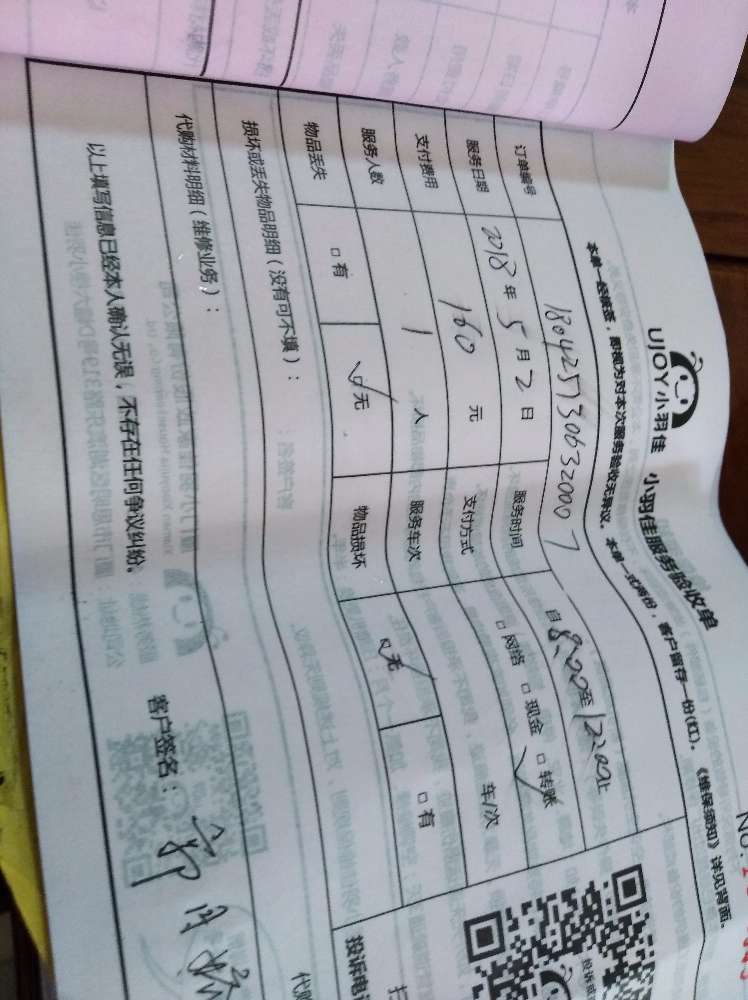 UJOY小羽佳 小羽佳服务验收单
本单一经签署，即视为对本次服务验收无异议。 本单一式两份，客户留存一份(红)。 《维保须知》详见背面。
订单编号
服务日期 2018年5月2日 服务时间 自8:00至12:00止
支付费用 160元 支付方式 □网络 □现金 □转账
服务人数 1人 服务车次 车/次
物品丢失 □有 □无 物品损坏 □无 □有
损坏或丢失物品明细（没有可不填）：
代购材料明细（维修业务）：
以上填写信息已经本人确认无误，不存在任何争议纠纷。
客户签名：
投诉电
代购